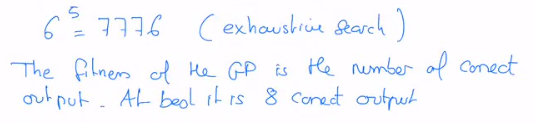 6^5 = 7776 (exhaustive search)
The fitness of the GP is the number of correct
output. At best it is 8 correct output